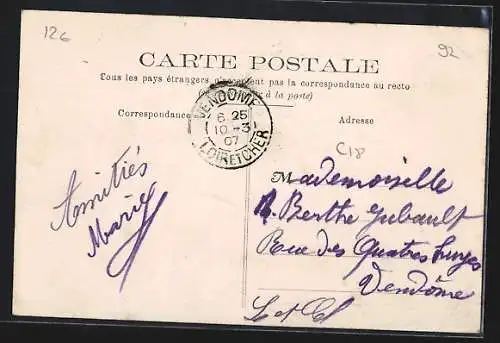 126
92
CARTE POSTALE
Tous les pays étrangers n'acceptent pas la correspondance au recto
à la poste)
Correspondance
Adresse
VENDOME
6 25
10 - 3
07
LOIR ET CHER
C18
Amitiés
Marie
Mademoiselle
Berthe
Rue des Quatres
Vendôme
L et C